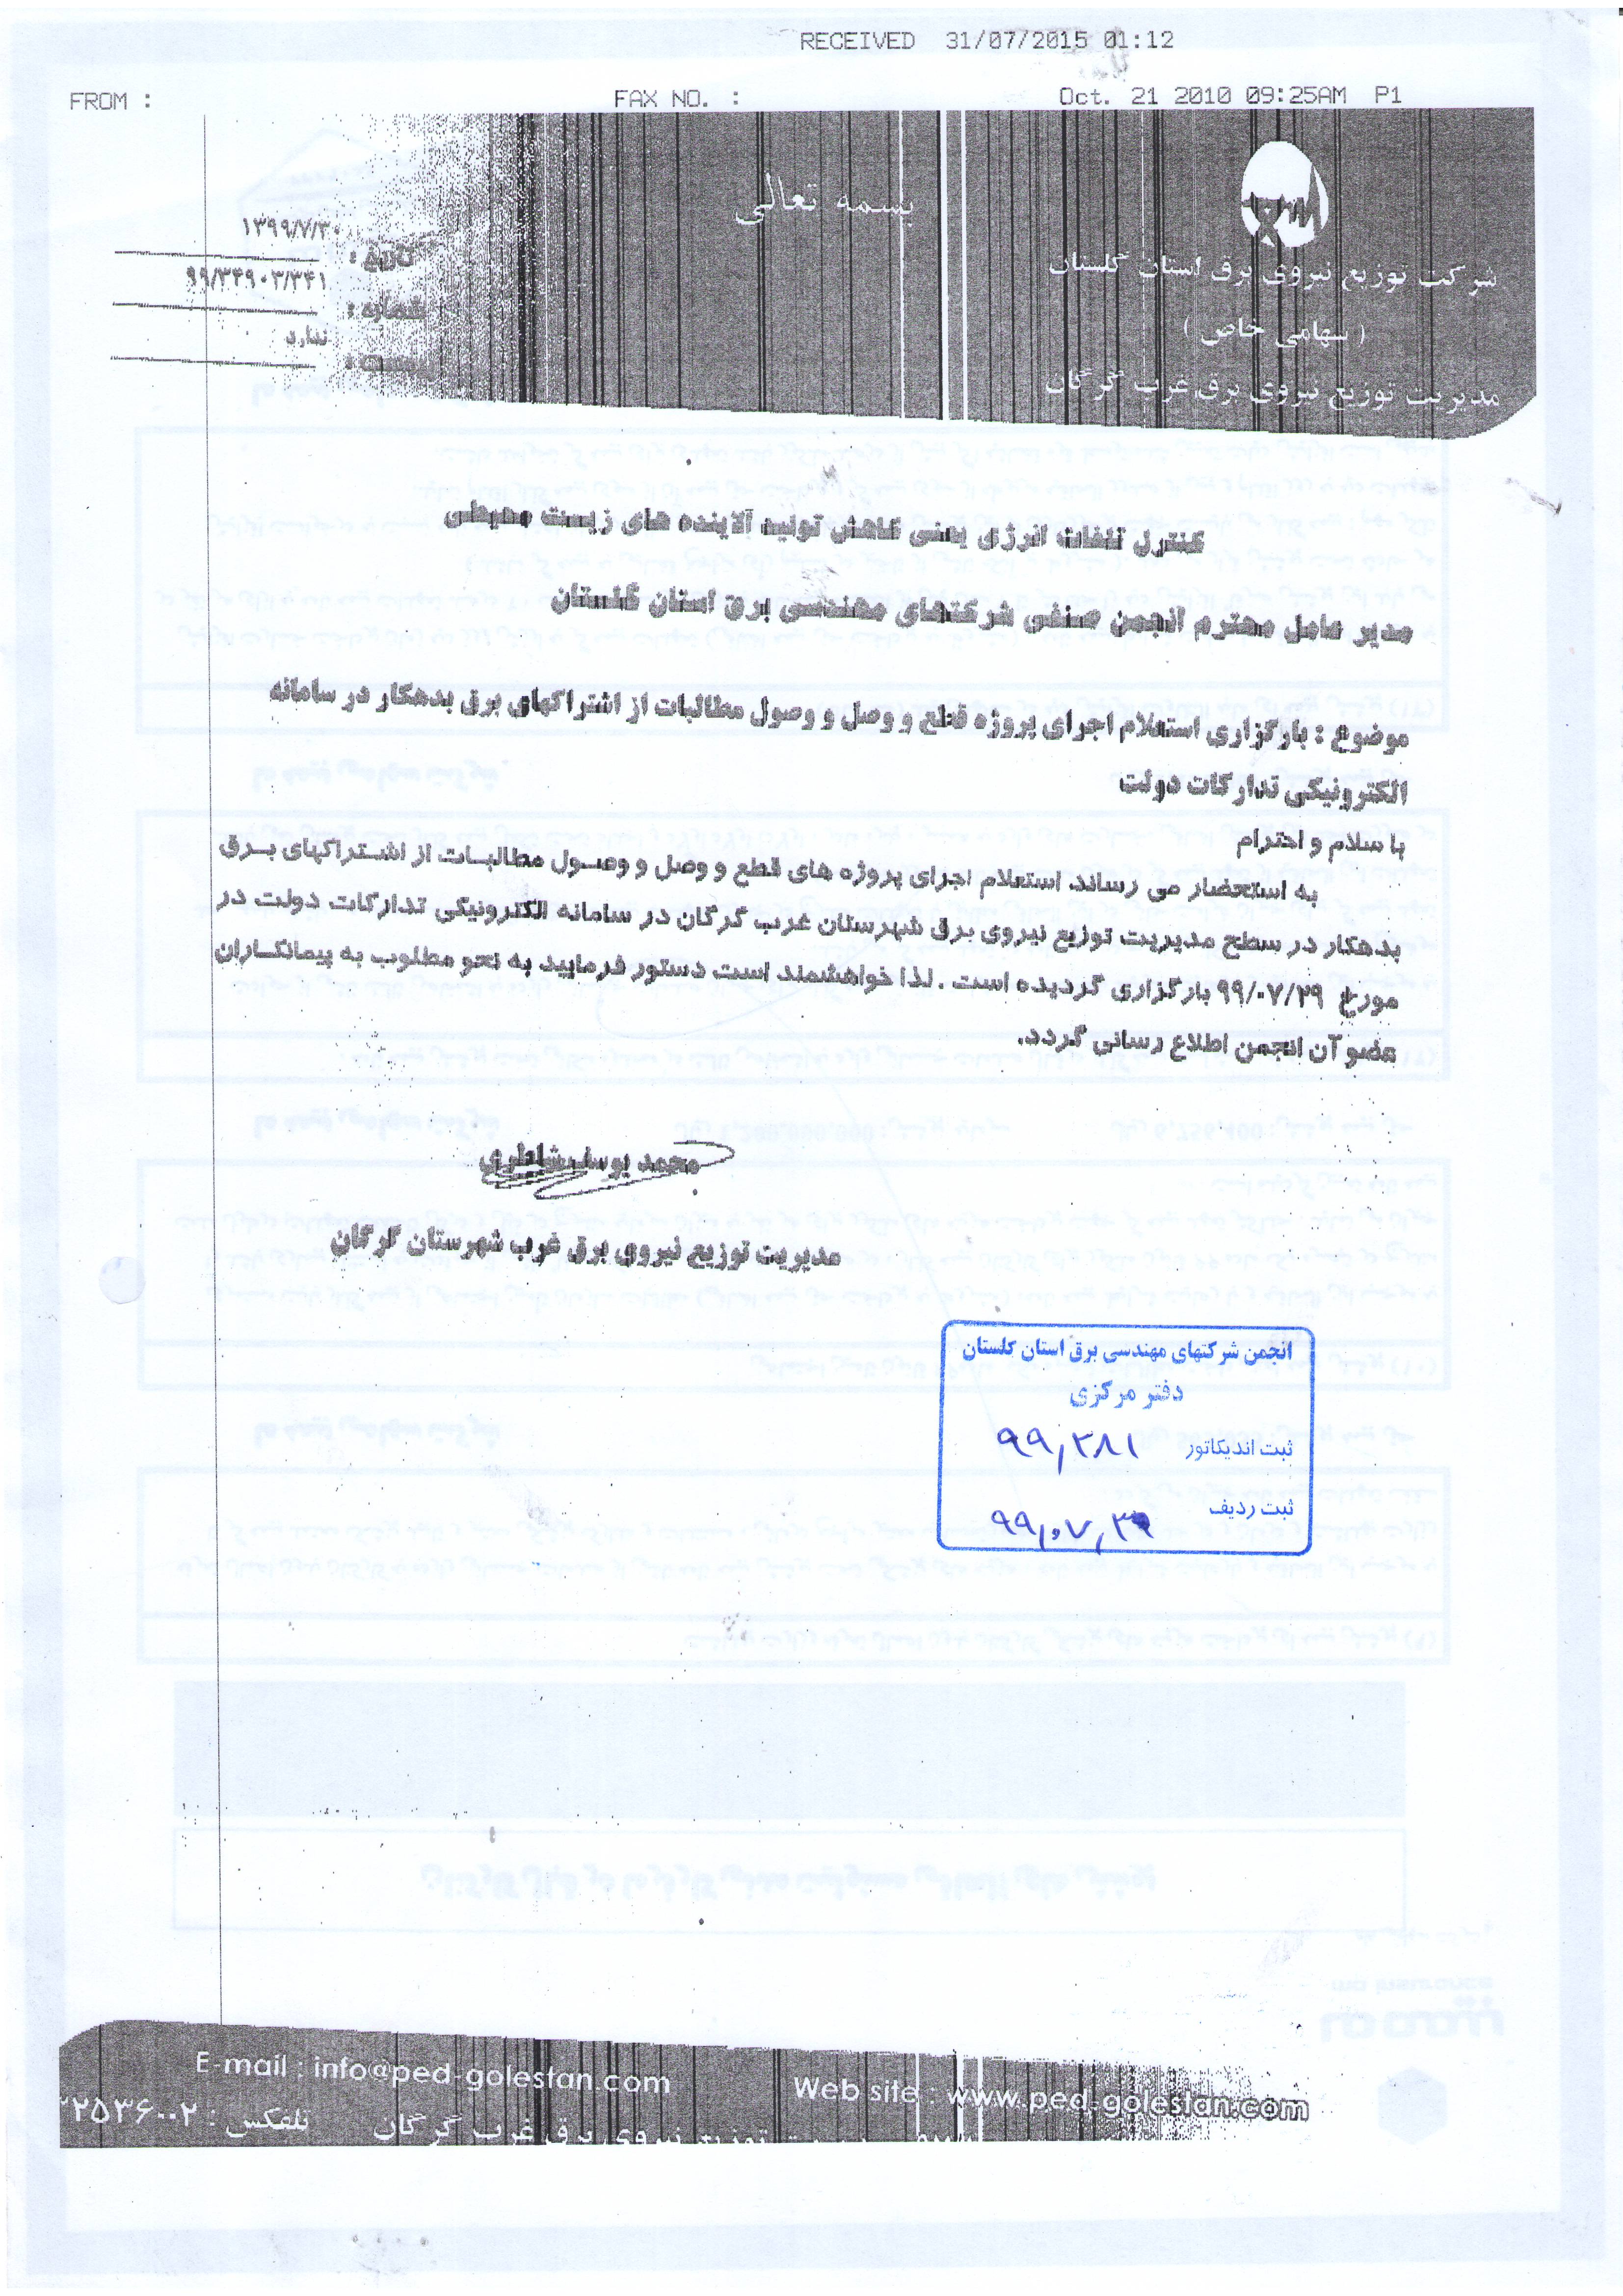 RECEIVED 31/07/2015 01:12
FROM : FAX NO. : Oct. 21 2010 09:25AM P1
بسمه تعالی
شرکت توزیع نیروی برق استان گلستان
( سهامی خاص )
مدیریت توزیع نیروی برق غرب گرگان
تاریخ : ۱۳۹۹/۷/۳۰
شماره : ۹۹/۳۴۹۰۳/۳۴۱
ندارد
کنترل تلفات انرژی یعنی کاهش تولید آلاینده های زیست محیطی
مدیر عامل محترم انجمن صنفی شرکتهای مهندسی برق استان گلستان
موضوع : بارگزاری استعلام اجرای پروژه قطع و وصل و وصول مطالبات از اشتراکهای برق بدهکار در سامانه
الکترونیکی تدارکات دولت
با سلام و احترام
به استحضار می رساند، استعلام اجرای پروژه های قطع و وصل و وصول مطالبات از اشتراکهای برق
بدهکار در سطح مدیریت توزیع نیروی برق شهرستان غرب گرگان در سامانه الکترونیکی تدارکات دولت در
مورخ ۹۹/۰۷/۲۹ بارگزاری گردیده است . لذا خواهشمند است دستور فرمایید به نحو مطلوب به پیمانکاران
عضو آن انجمن اطلاع رسانی گردد.
محمد یوسف شاطری
مدیریت توزیع نیروی برق غرب شهرستان گرگان
انجمن شرکتهای مهندسی برق استان گلستان
دفتر مرکزی
ثبت اندیکاتور ۹۹,۲۸۱
ثبت ردیف ۹۹,۰۷,۲۹
E-mail : info@ped-golestan.com Web site : www.ped-golestan.com
توزیع نیروی برق غرب گرگان تلفکس :